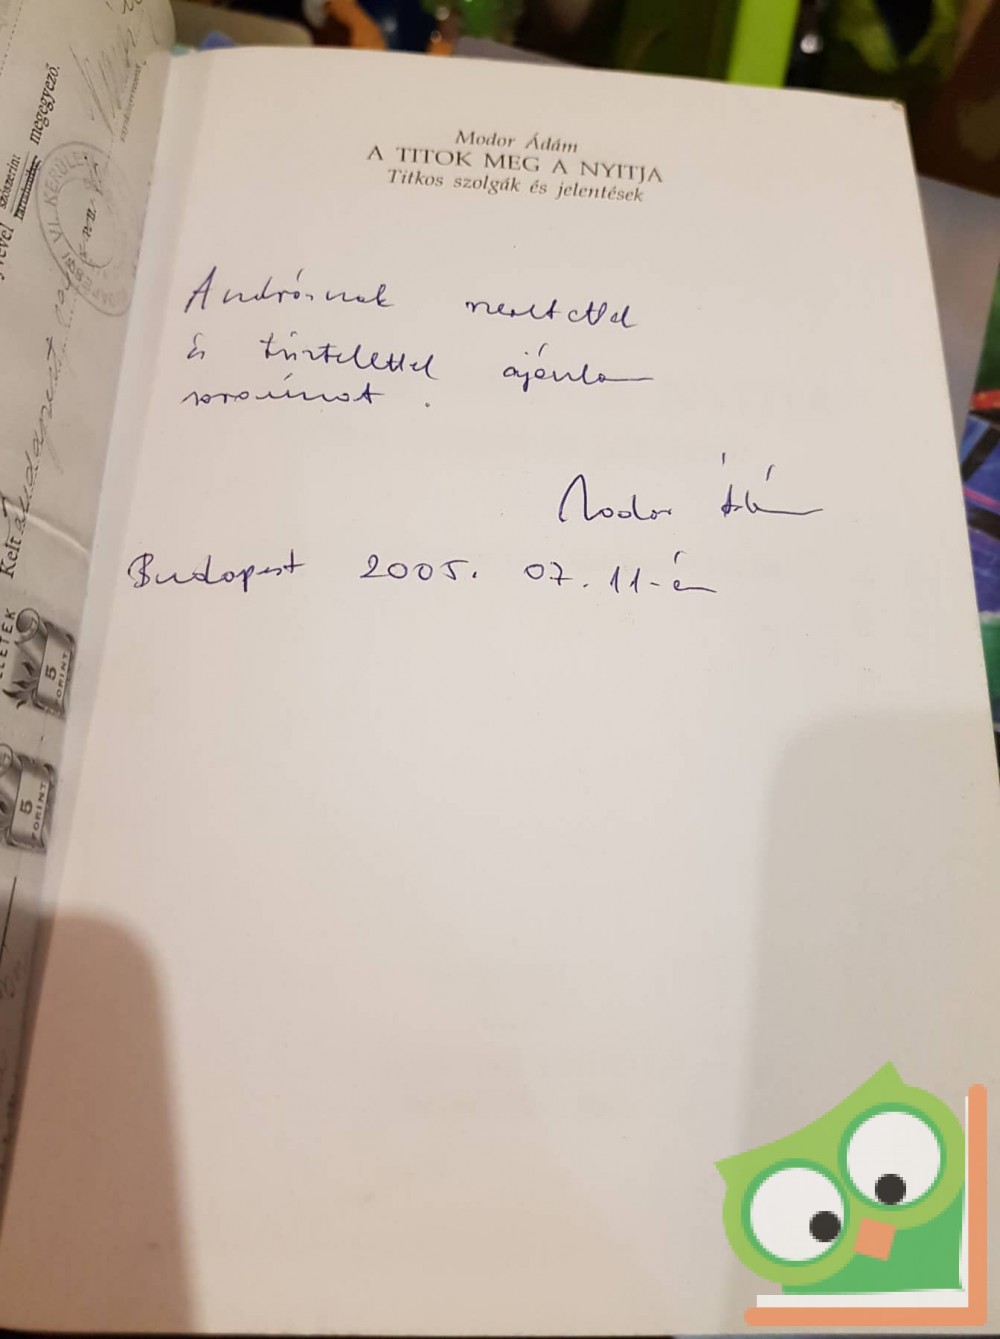 Modor Ádám
A TITOK MEG A NYITJA
Titkos szolgák és jelentések
Andrásnak szeretettel
és tisztelettel ajánlom
soraimat.
Modor Ádám
Budapest 2005. 07. 11-én
megegyező.
szószerint
VI. KERÜLETI
Kelt Budapest
5
FORINT
5
FORINT